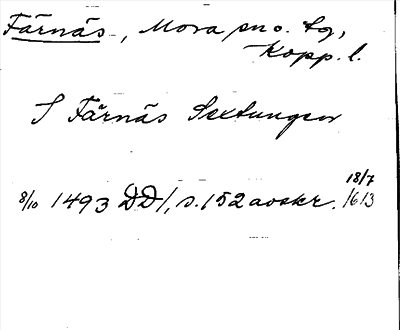 Färnäs, Mora sn o. tg,
Kopp. l.
I Färnäs Sextungen
8/10 1493 DD1, s. 152 avskr. 18/7 1613